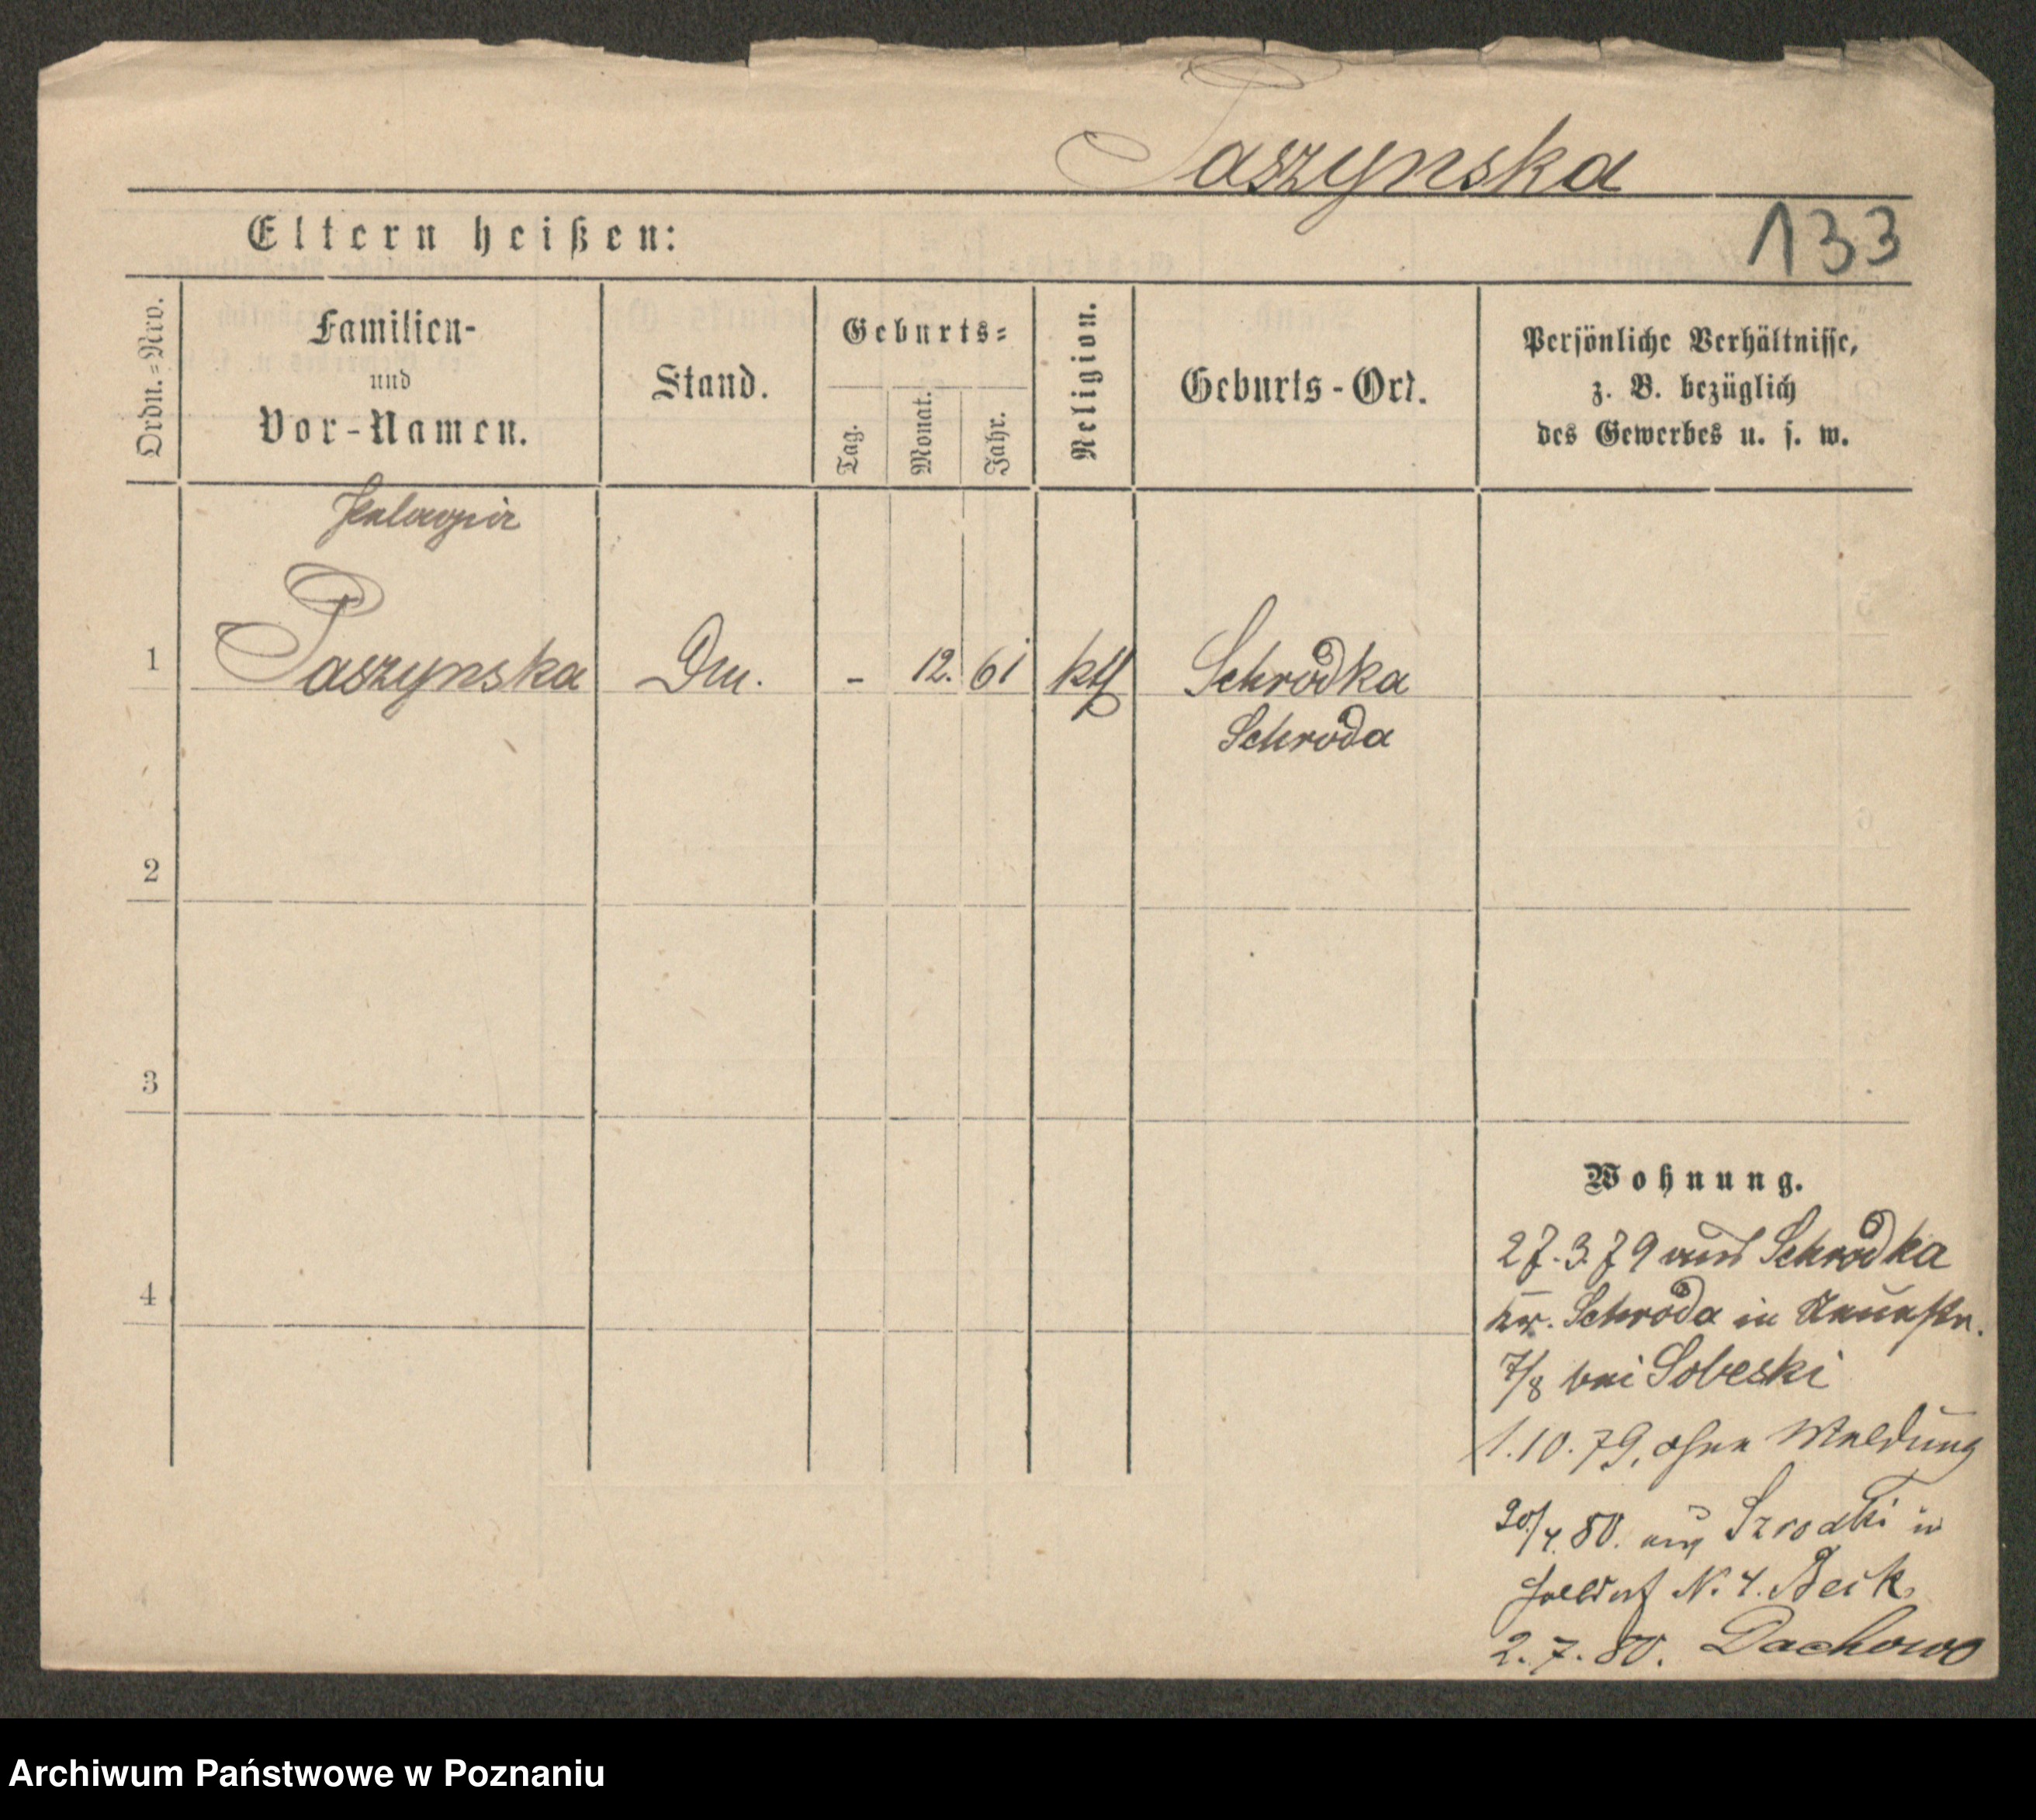 Paszynska
133
Eltern heißen:
Ordn.=Nro.
Familien-
und
Vor-Namen.
Stand.
Geburts=
Tag.
Monat.
Jahr.
Religion.
Geburts-Ort.
Persönliche Verhältnisse,
z. B. bezüglich
des Gewerbes u. s. w.
1
Paszynska
- 12. 61
kth
Schrodka
Schroda
2
3
4
Wohnung.
27.3.79 aus Schrodka
kr. Schroda in
7/8 bei Sobeski
1.10.79, ohne Meldung
80. aus Szrodki in
Halldorf N. 4. Beik
2.7.80. Dachowo
Archiwum Państwowe w Poznaniu